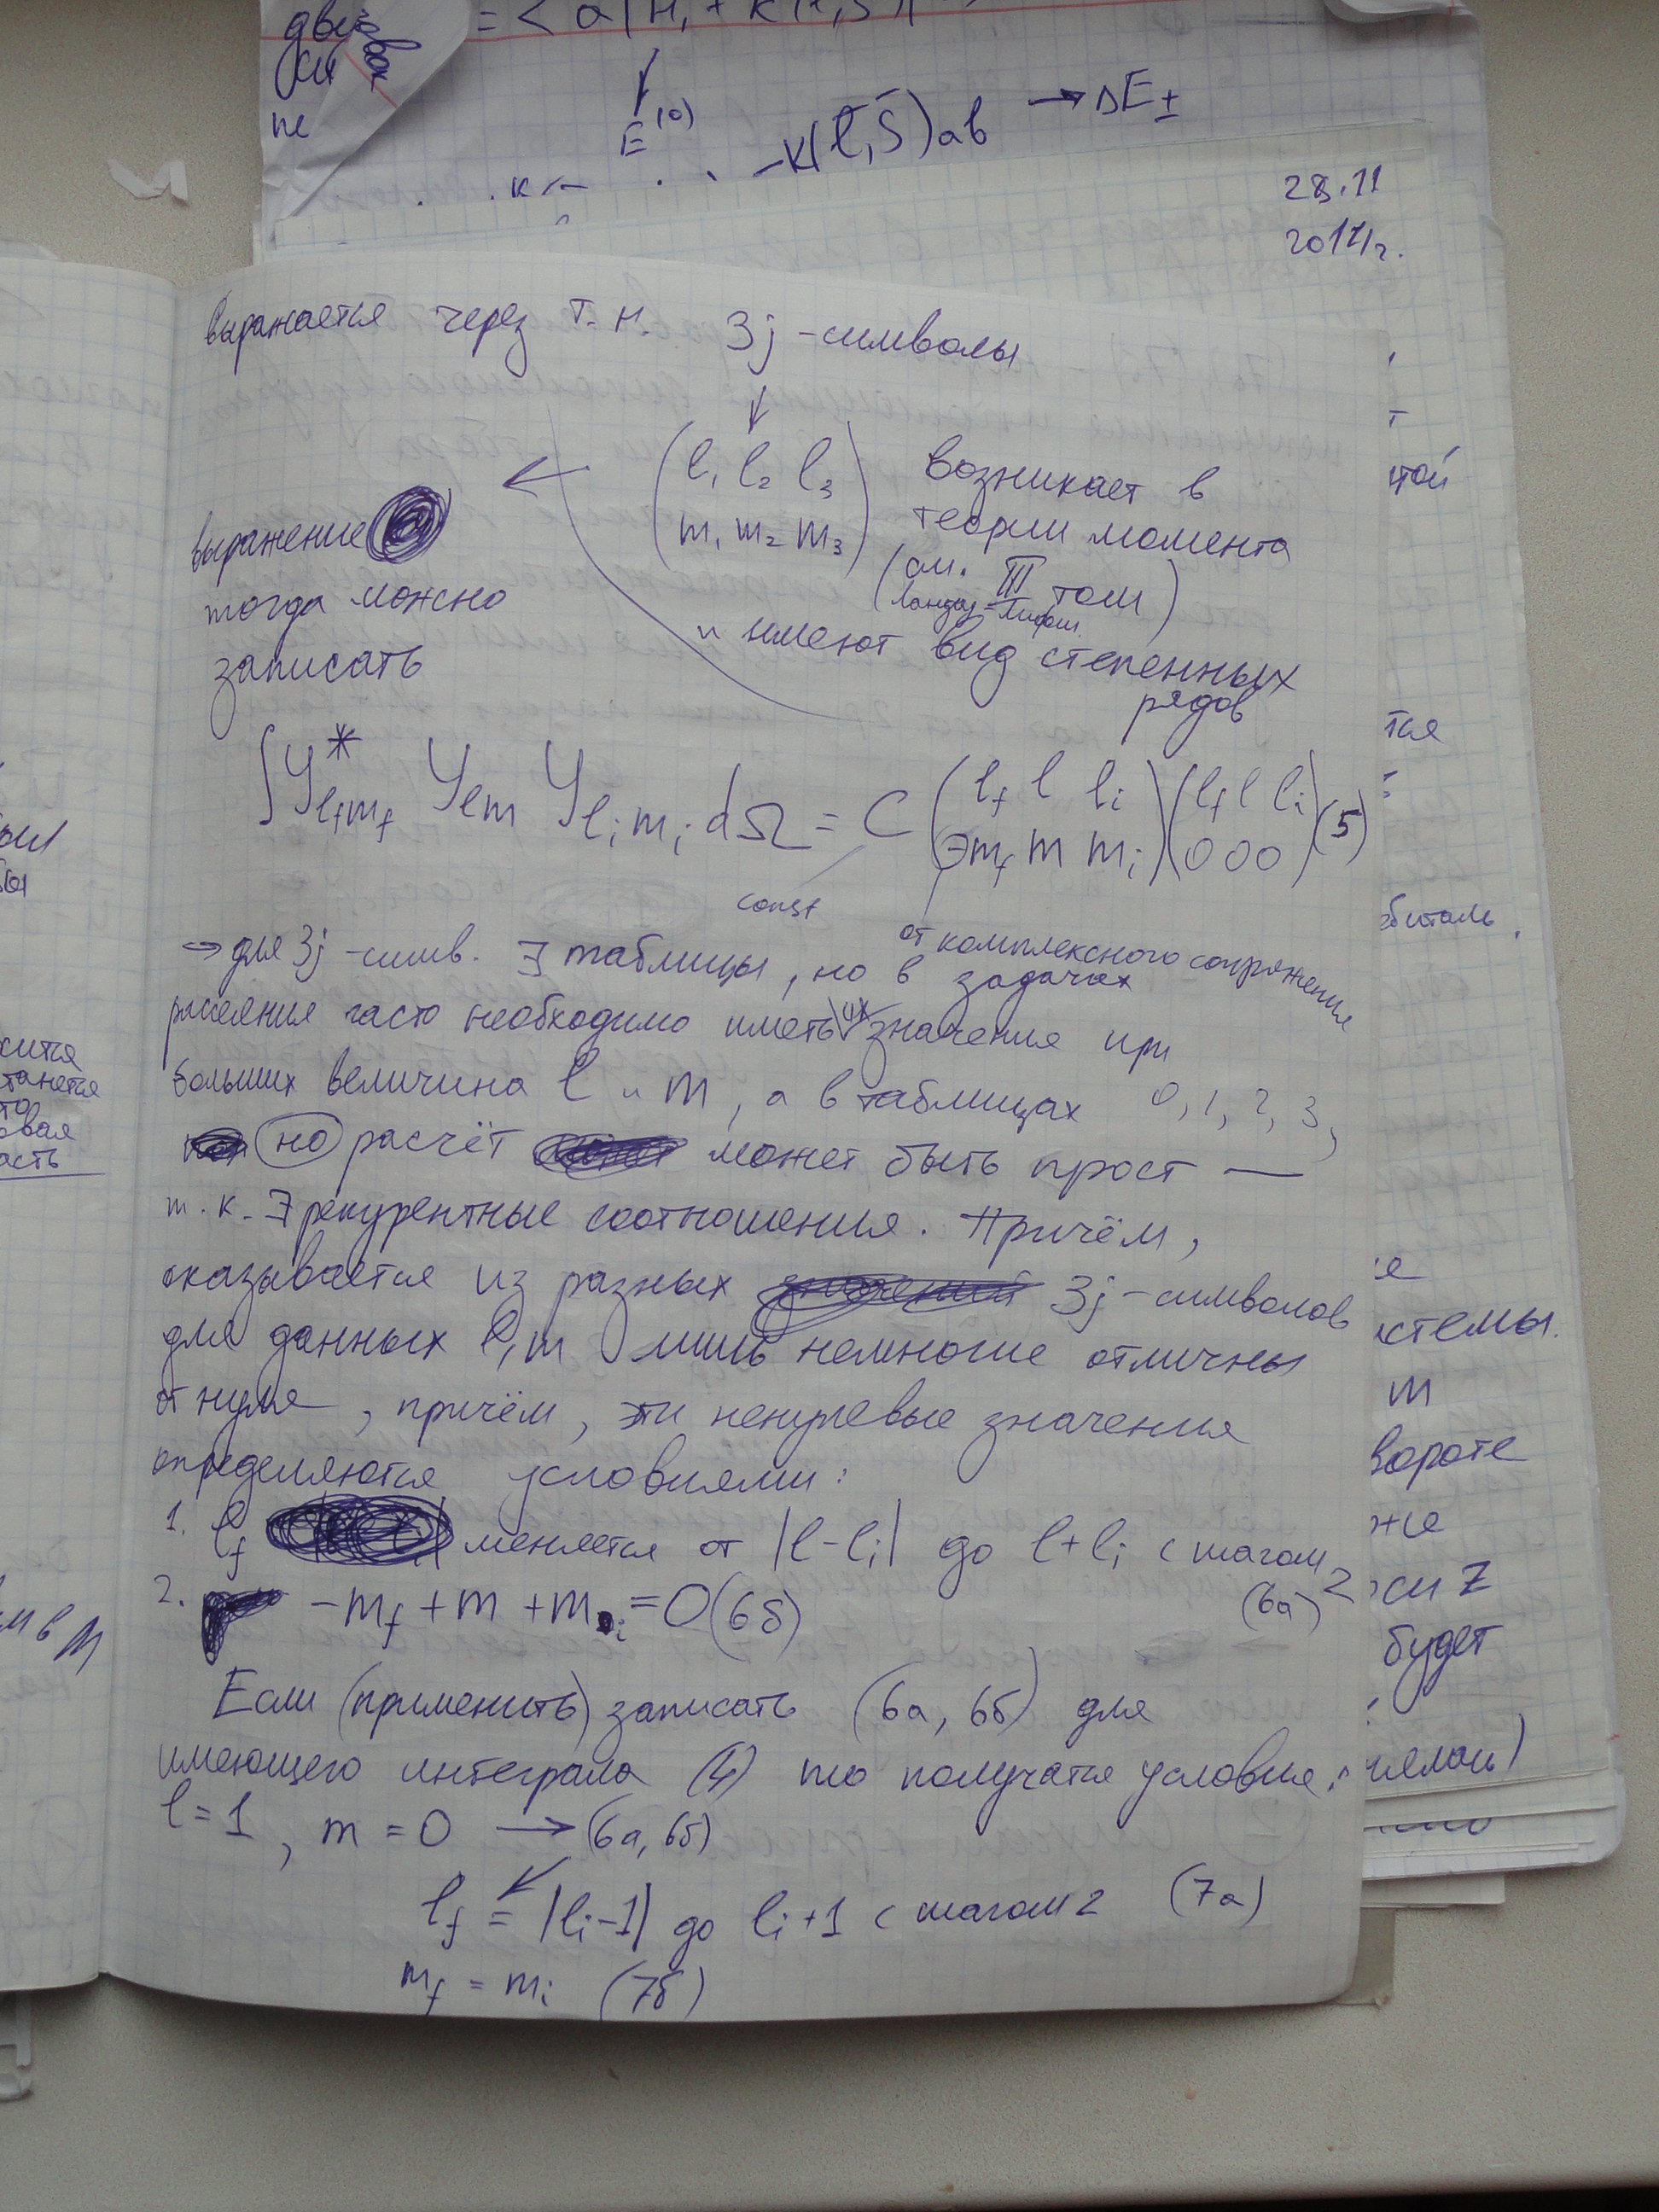 = < a | H₁ +
E⁽⁰⁾
-K(l̄,S̄)ab → ΔE±
28.11
выражается через т.н. 3j-символы
(l₁ l₂ l₃
m₁ m₂ m₃)
возникает в
теории момента
(см. III том)
Ландау-Лифш.
и имеют вид степенных
рядов
выражение
тогда можно
записать
∫Y*lfmf Ylm Ylimi dΩ = C (lf l li
-mf m mi) (lf l li
0 0 0) (5)
const
от комплексного сопряжения
⇒ для 3j-симв. ∃ таблицы, но в задачах
рассеяния часто необходимо иметь их значения при
больших величина l и m, а в таблицах 0, 1, 2, 3,
но расчёт может быть прост —
т.к. ∃ рекурентные соотношения. Причём,
оказывается из разных 3j-символов
для данных l, m лишь немногие отличны
от нуля, причём, эти ненулевые значения
определяются условиями:
1. lf меняется от |l-li| до l+li с шагом 2
(6а)
2. -mf + m + mi = 0 (6б)
Если (применить) записать (6а, 6б) для
имеющего интеграла (4) то получатся условия:
l=1, m=0 → (6а, 6б)
lf = |li-1| до li+1 с шагом 2 (7а)
mf = mi (7б)
стемы.
m
вороте
же
оси Z
будет